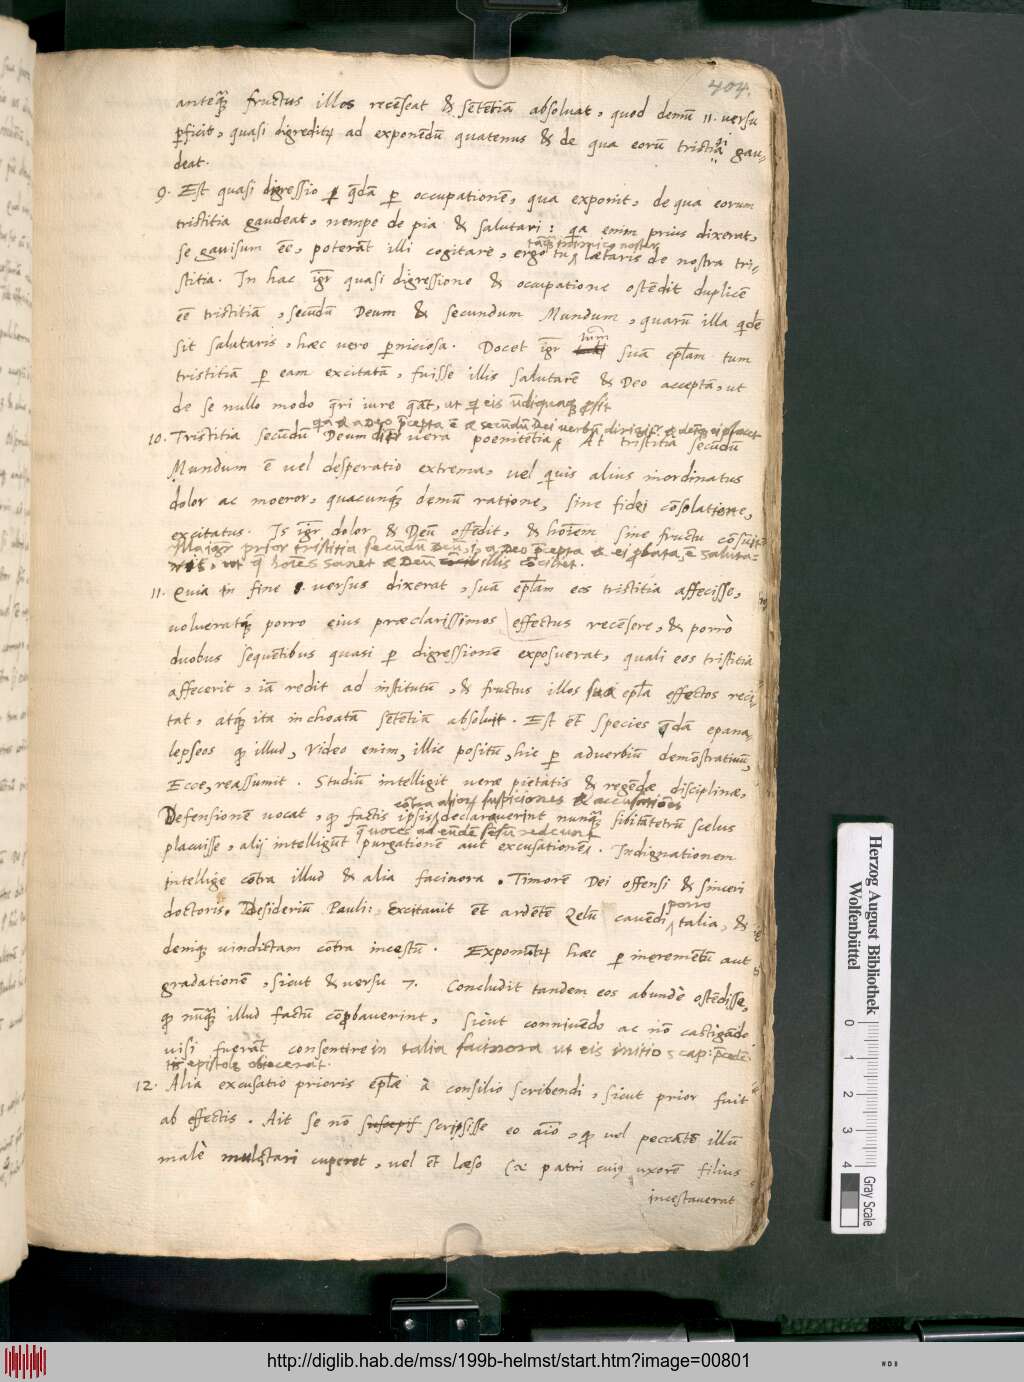 404.
anteq̃ fructus illos recēseat & sētētiā absoluat, quod demū 11. versu
p̱ficit, quasi digreditʳ ad exponēdū quatenus & de qua eorū tristitia gau-
deat.
9. Est quasi digressio p̱ q̄dā p̱ occupationē, qua exponit, de qua eorum
tristitia gaudeat, nempe de pia & salutari: q̱a enim prius dixerat,
se gauisum ēē, poterāt illi cogitare, ergo tu lætaris de nostra tri-
tāq̃ inimico nostro
stitia. In hac igr̄ quasi digressione & occupatione ostēdit duplicē
ēē tristitiā, secūdū Deum & secundum Mundum, quarū illa q̱dē
sit salutaris, hæc vero p̱niciosa. Docet igr̄ suā epl̄am tum
tum
tristitiā p̱ eam excitatā, fuisse illis salutarē & Deo acceptā, ut
de se nullo modo q̄ri iure q̄āt, ut q̱ eis ūdiquaq̱ p̱sit
q̱a & a Deo p̄cepta ē & secūdū Dei verbū dirigit & deniq̱ ei placet
10. Tristitia secūdū Deum vera poenitētia. At tristitia secūdū
Mundum ē vel desperatio extrema, vel quis alius inordinatus
dolor ac moeror, quacunq́ demū ratione, sine fidei cōsolatione,
excitatus. Is igr̄ dolor & Deū offēdit, & hoīem sine fructu cōsumit
igr̄ prior tristitia secūdū Deū, a Deo p̄cepta & ei p̱bata, ē saluta-
ris, ut q̱ hoīes sanet & Deū illis cōciliet.
11. Quia in fine 8. versus dixerat, suā epl̄am eos tristitia affecisse,
volueratq́ porro eius præclarissimos effectus recēsere, & porrò
duobus sequētibus quasi p̱ digressionē exposuerat, quali eos tristitia
affecerit, iā redit ad institutū, & fructus illos sua epl̄a effectos reci-
tat, atq́ ita inchoatā sētētiā absoluit. Est ēt species q̄dā epana-
lepseos q̱ illud, Video enim, illic positū, hic p̱ adverbiū demōstratiuū,
Ecce, reassumit. Studiū intelligit veræ pietatis & regēdæ disciplinæ,
cōtra aliorʳ suspiciones & accusationes
Defensionē vocat, q̱ factis ipsis declarauerint nunq̃ sibi tātetrū scelus
placuisse, alij intelligūt purgationē aut excusationē. Indignationem
q̱ voces ad eūdē sēsū redeunt
intellige cōtra illud & alia facinora. Timorē Dei offensi & sinceri
doctoris. Desideriū Pauli: Excitauit ēt ardētē Zelū cauēdi talia, &
porro
deniq̱ vindictam cōtra incestū. Exponūtʳ hæc p̱ incremētū aut
gradationē, sicut & versu 7. Concludit tandem eos abundè ostēdisse,
q̱ nūq̃ illud factū cōp̱bauerint, sicut conniuēdo ac nō castigādo
visi fuerāt consentire in talia facinora ut eis initio 5 cap: p̄cedē-
tis epistolæ obiecerat.
12. Alia excusatio prioris epl̄æ à consilio scribendi, sicut prior fuit
ab effectis. Ait se nō suscepis scripsisse eo aīo, q̱ vel peccatō illū
malè mulctari cuperet, vel ēt læso (& patri cuiʳ uxorē filius
incestauerat
Herzog August Bibliothek
Wolfenbüttel
0 1 2 3 4
Gray Scale
http://diglib.hab.de/mss/199b-helmst/start.htm?image=00801
WDB